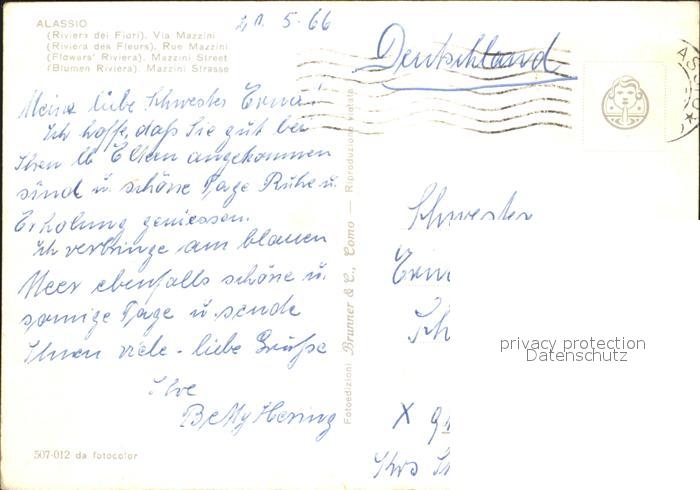 ALASSIO
(Riviera dei Fiori). Via Mazzini
(Riviera des Fleurs). Rue Mazzini
(Flowers' Riviera). Mazzini Street
(Blumen Riviera). Mazzini Strasse
21. 5. 66
Meine liebe Schwester Erna!
Ich hoffe, daß Sie gut bei
Ihren lb Eltern angekommen
sind u. schöne Tage Ruhe u.
Erholung geniessen.
Ich verbringe am blauen
Meer ebenfalls schöne u.
sonnige Tage u. sende
Ihnen viele - liebe Grüße
Ihre
Betty Hering
507-012 da fotocolor
Fotoedizioni Brunner & C., Como — Riproduzione vietata
Deutschland
Schwester
Ern
Sch
X
Krs
privacy protection
Datenschutz